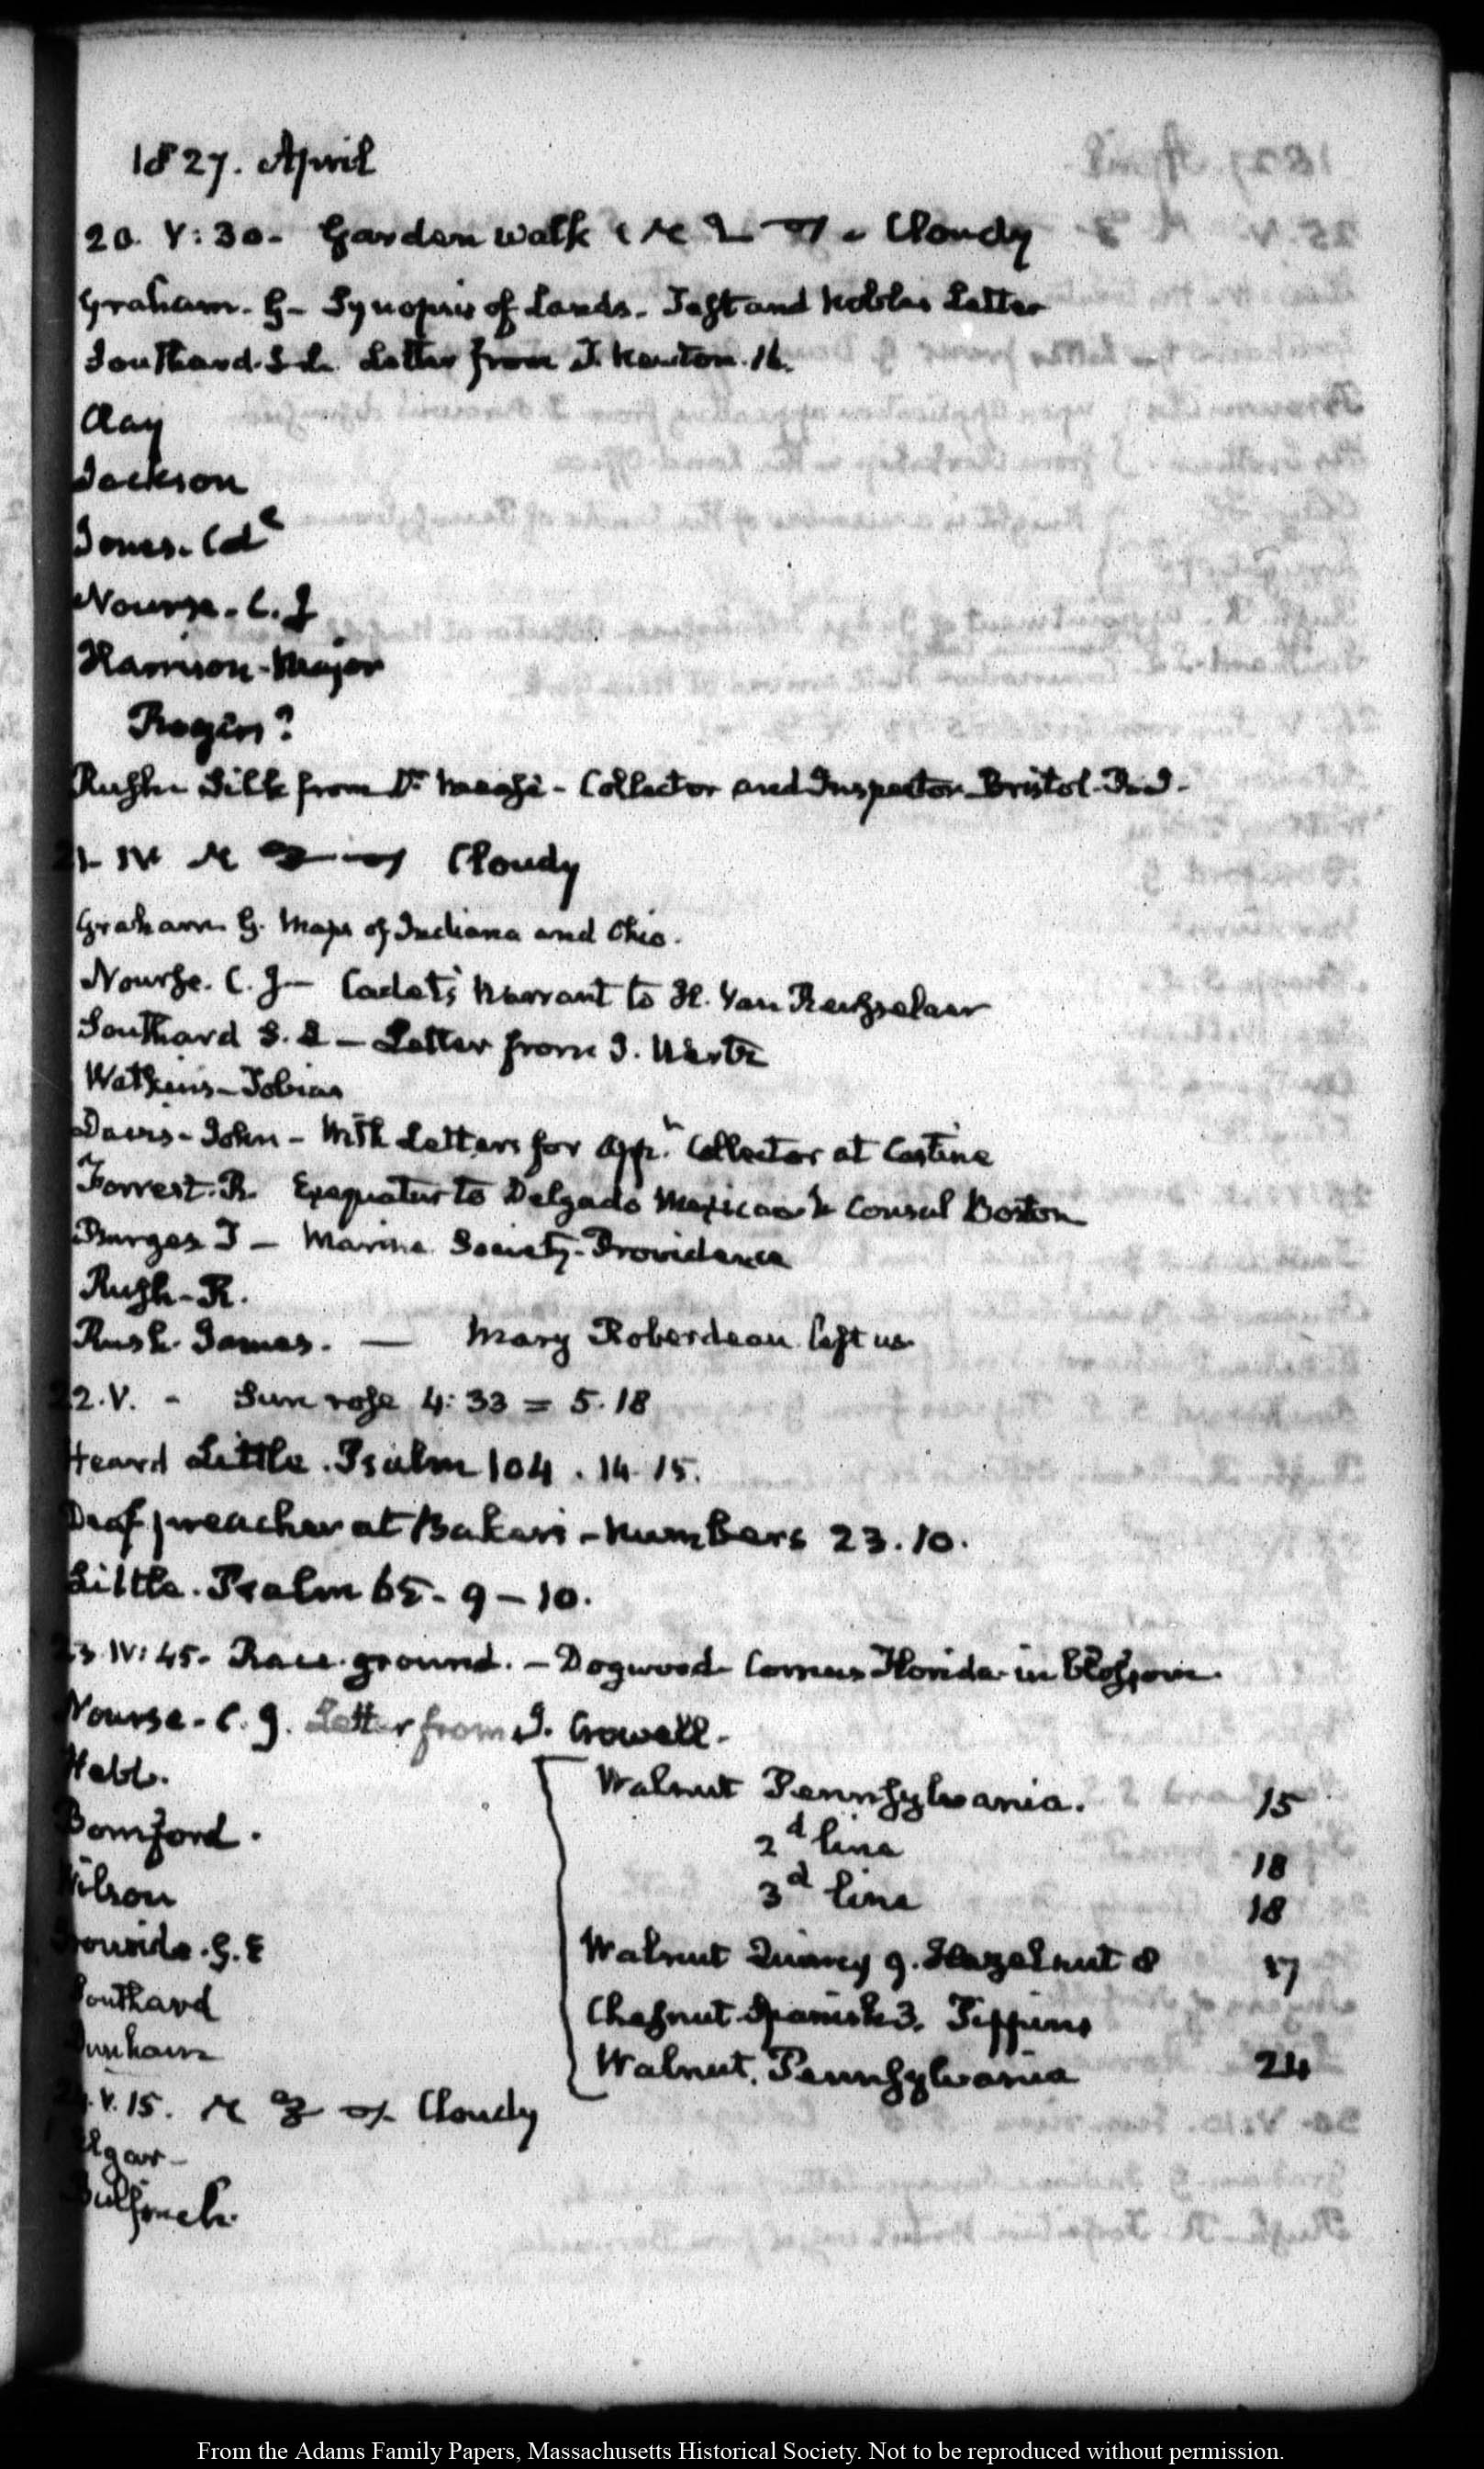 1827. April
20. V:30- Garden walk Cloudy
Graham. G- Synopsis of Lands. Taft and Letter
Southard. S. L. Letter from T. Newton. 16.
Clay
Jackson
Jones. Col
Nourse. C. J
Harrison-Major
Rogin?
Rush Silk from Dr Mease - Collector and Inspector Bristol. R.I.
21. IV Cloudy
Graham G. Maps of Indiana and Ohio.
Nourse. C. J- Cadet's Warrant to H. Van Rensselaer
Southard S. L - Letter from
Watkins-Tobias
Davis-John - With Letters for app.t Collector at Castine
Forrest. R. Exequatur to Delgado Mexican V. Consul Boston
Burges T - Marine Society-Providence
Rush-R.
Rush. James. - Mary Roberdeau left us
22. V. - Sun rose 4:33 = 5.18
Heard Little. Psalm 104. 14. 15.
Deaf preacher at Bakers - Numbers 23. 10.
Little. Psalm 65. 9-10.
23 IV:45. Race ground. - Dogwood Cornus Florida in blossom.
Nourse. C. J. Letter from J. Crowell.
Webb.
Bomford.
Wilson
Ironside. G. E
Southard
Dunham
Walnut Pennsylvania. 15
2d line 18
3d line 18
Walnut Quincy 9. Hazelnut 8 17
Chesnut Spanish 3.
Walnut. Pennsylvania 24
24. V. 15. Cloudy
Elgar-
Bulfinch.
From the Adams Family Papers, Massachusetts Historical Society. Not to be reproduced without permission.